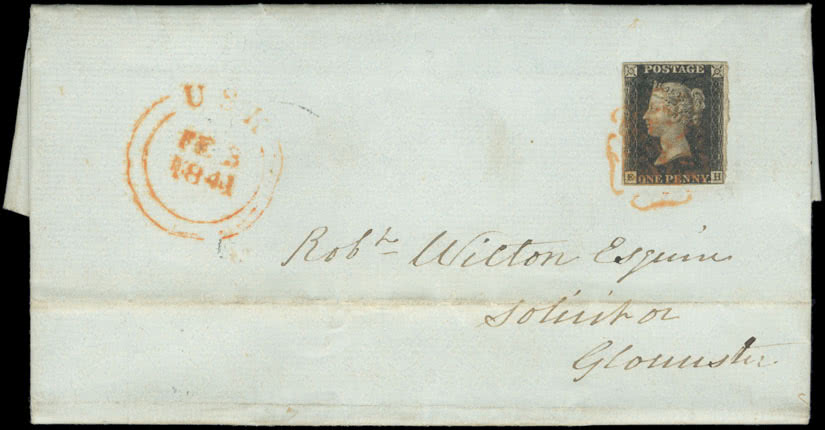 USK
FE 3
1841
POSTAGE
E ONE PENNY H
Robt Wilton Esquire
Solicitor
Gloucester